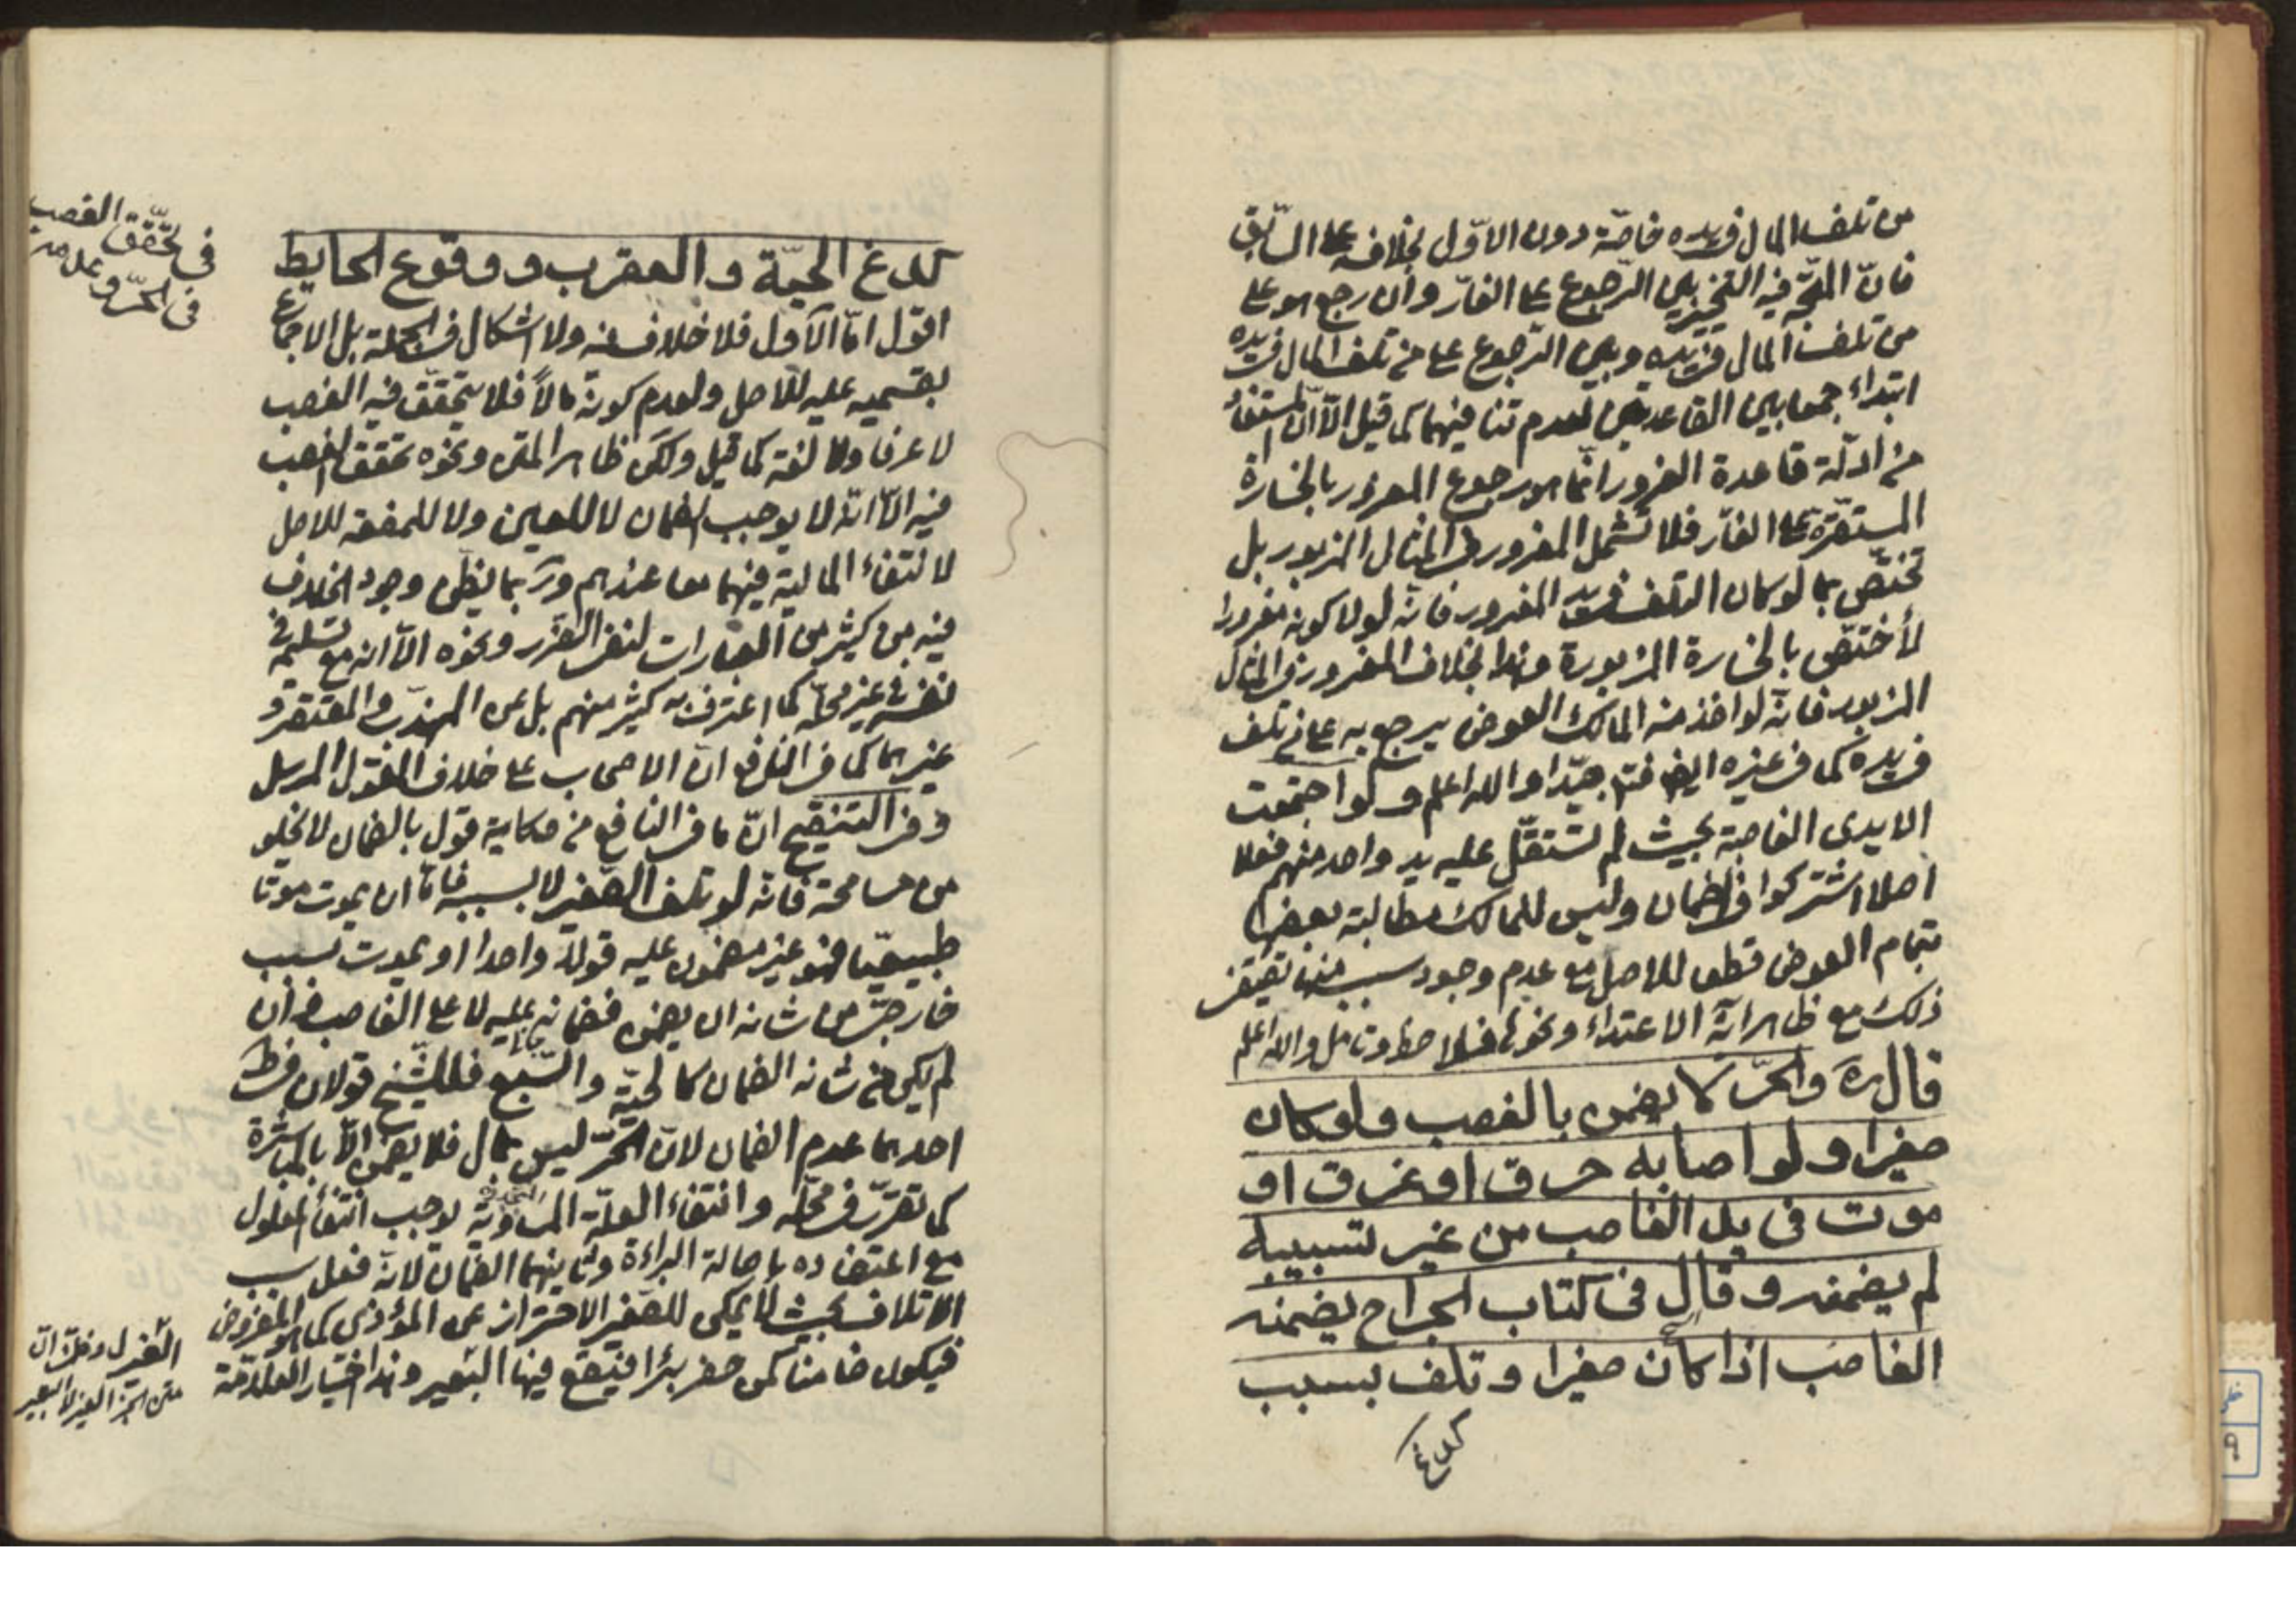 من تلف المال فی یده خاصّة دون الاوّل بخلافه علی السّابق
فانّ المتّجه فیه التخییر بین الرّجوع علی الغارّ وان رجع هو علی
من تلف المال فی یده وبین الرّجوع علی من تلف المال فی یده
ابتداء جمعا بین القاعدتین لعدم تنافیهما کما قیل الاّ انّ المستفاد
من ادلّة قاعدة الغرور انّما هو رجوع المغرور بالخسارة
المستقرّة علی الغارّ فلا تشمل المغرور فی المثال المزبور بل
تختصّ بما لو کان التلف فی ید المغرور فانّه لولا کونه مغرورا
لأختصّ بالخسارة المزبورة وهذا بخلاف المغرور فی المثال
المزبور فانّه لو اخذ منه المالک العوض یرجع به علی من تلف
فی یده کما فی غیره ایضا فتدبّر جیّدا والله اعلم ولو اجتمعت
الایدی الغاصبة بحیث لم تستقلّ علیه ید واحد منهم فعلا
اصلا اشترکوا فی الضمان ولیس للمالک مطالبة بعضها
بتمام العوض قطعا للاصل مع عدم وجود سبب منها یقتضی
ذلک مع ظاهر آیة الاعتداء ونحوها فلاحظ وتامل والله اعلم
قال ره والحرّ لا یضمن بالغصب ولو کان
صغیرا ولو اصابه حرق او غرق او
موت فی ید الغاصب من غیر تسبیبه
لم یضمنه وقال فی کتاب الجراح یضمنه
الغاصب اذا کان صغیرا وتلف بسبب
کلدغ
کلدغ الحیّة والعقرب ووقوع الحایط
اقول امّا الاوّل فلا خلاف فیه ولا اشکال فی الجملة بل الاجماع
بقسمیه علیه للاصل ولعدم کونه مالاً فلا یتحقّق فیه الغصب
لا عرفا ولا لغة کما قیل ولکن ظاهر المتن ونحوه تحقّق الغصب
فیه الاّ انّه لا یوجب الضمان لا للعین ولا للمنفعة للاصل
لانتفاء المالیة فیهما معا عندهم وربّما یظنّ وجود الخلاف
فیه من کثیر من العبارات لنفی الضرر ونحوه الاّ انه مع تسلیمه فی
نفسه فی غیر محلّه کما اعترف به کثیر منهم بل عن المهذّب والمقتصر و
غیرهما کما فی النافع انّ الاصحاب علی خلاف القول المرسل
وفی التنقیح انّ ما فی النافع من حکایة قول بالضمان لا یخلو
من مسامحة فانّه لو تلف الصّغیر لا بسببه فامّا ان یموت موتا
طبیعیّا فهو غیر مضمون علیه قولاً واحدا او یموت بسبب
خارجیّ من شانه ان یضمن فضمانه علیه لا علی الغاصب فان
لم یکن من شانه الضمان کالحیّة والسّبع فللشّیخ قولان
احدهما عدم الضمان لانّ الحرّ لیس بمال فلا یضمن الاّ بالمباشرة
کما تقرّر فی محلّه وانتفاء العلّة المساویة یوجب انتفاء المعلول
مع اعتضاده باصالة البراءة وثانیهما الضمان لانّه فعل سبب
الاتلاف بحیث لا یمکن للصّغیر الاحتراز عن المؤذی کما هو المفروض
فیکون ضامنا کمن حفر بئرا فیقع فیها البعیر وهذا اختیار العلاّمة
فی تحقّق الغصب
فی الحرّ وعدمه